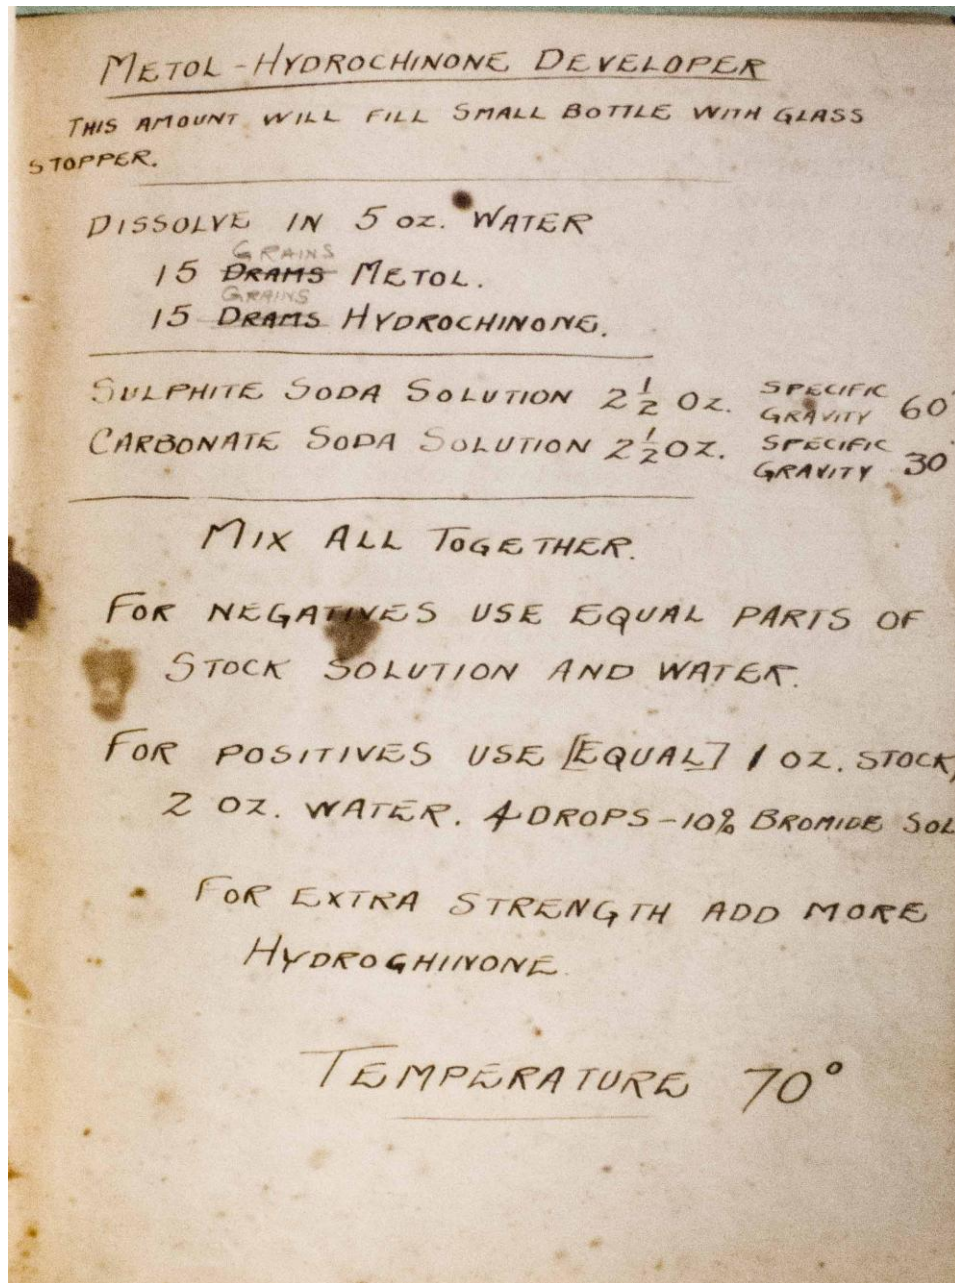 METOL-HYDROCHINONE DEVELOPER
THIS AMOUNT WILL FILL SMALL BOTTLE WITH GLASS
STOPPER.
DISSOLVE IN 5 OZ. WATER
GRAINS
15 DRAMS METOL.
GRAINS
15 DRAMS HYDROCHINONE.
SULPHITE SODA SOLUTION 2 1/2 OZ. SPECIFIC GRAVITY 60°
CARBONATE SODA SOLUTION 2 1/2 OZ. SPECIFIC GRAVITY 30°
MIX ALL TOGETHER.
FOR NEGATIVES USE EQUAL PARTS OF
STOCK SOLUTION AND WATER.
FOR POSITIVES USE [EQUAL] 1 OZ. STOCK,
2 OZ. WATER. 4 DROPS-10% BROMIDE SOL
FOR EXTRA STRENGTH ADD MORE
HYDROCHINONE.
TEMPERATURE 70°